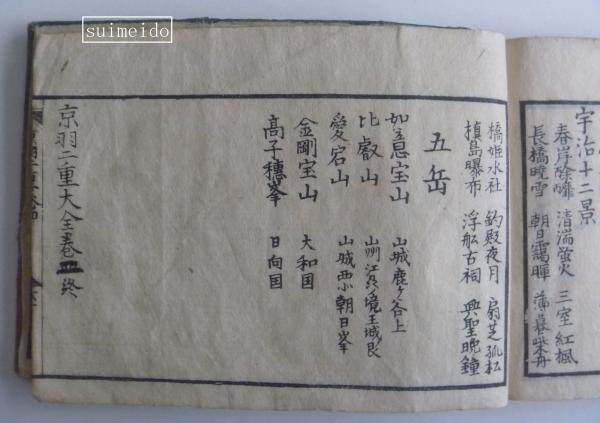 suimeido
宇治十二景
春岸醁醿 清湍螢火 三室紅楓
長橋曉雪 朝日靄暉 薄暮柴舟
橋姫水社 釣殿夜月 扇芝孤松
槙島曝布 浮舩古祠 興聖晩鐘
五岳
如意宝山 山城鹿ヶ谷上
比叡山 山州江州境王城艮
愛宕山 山城西小朝日峯
金剛宝山 大和国
髙千穗峯 日向国
京羽二重大全巻 終